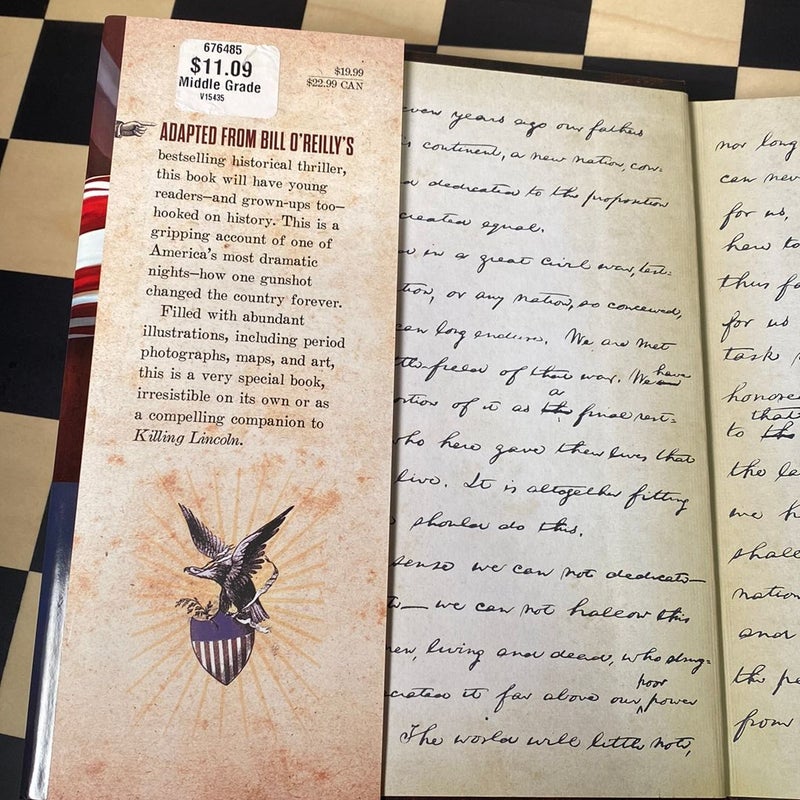 676485
$11.09
Middle Grade
V15435
$19.99
$22.99 CAN
ADAPTED FROM BILL O'REILLY'S
bestselling historical thriller,
this book will have young
readers—and grown-ups too—
hooked on history. This is a
gripping account of one of
America's most dramatic
nights—how one gunshot
changed the country forever.
Filled with abundant
illustrations, including period
photographs, maps, and art,
this is a very special book,
irresistible on its own or as
a compelling companion to
Killing Lincoln.
even years ago our fathers
continent, a new nation, con-
dedicated to the proposition
created equal.
in a great civil war, test-
tion, or any nation, so conceived,
can long endure. We are met
tle-field of that war. We have
ortion of it as a the final rest-
who here gave their lives that
live. It is altogether fitting
should do this.
sense we can not dedicate—
we can not hallow this
men, living and dead, who strug-
crated it far above our poor power
The world will little note,
nor long
can nev
for us,
here to
thus fa
for us
task
honored
that
to the
the la
we h
shall
nation
and
the pe
from